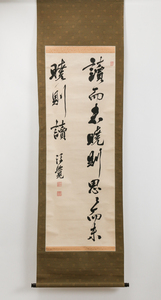 讀而未曉則思々而未
曉則讀